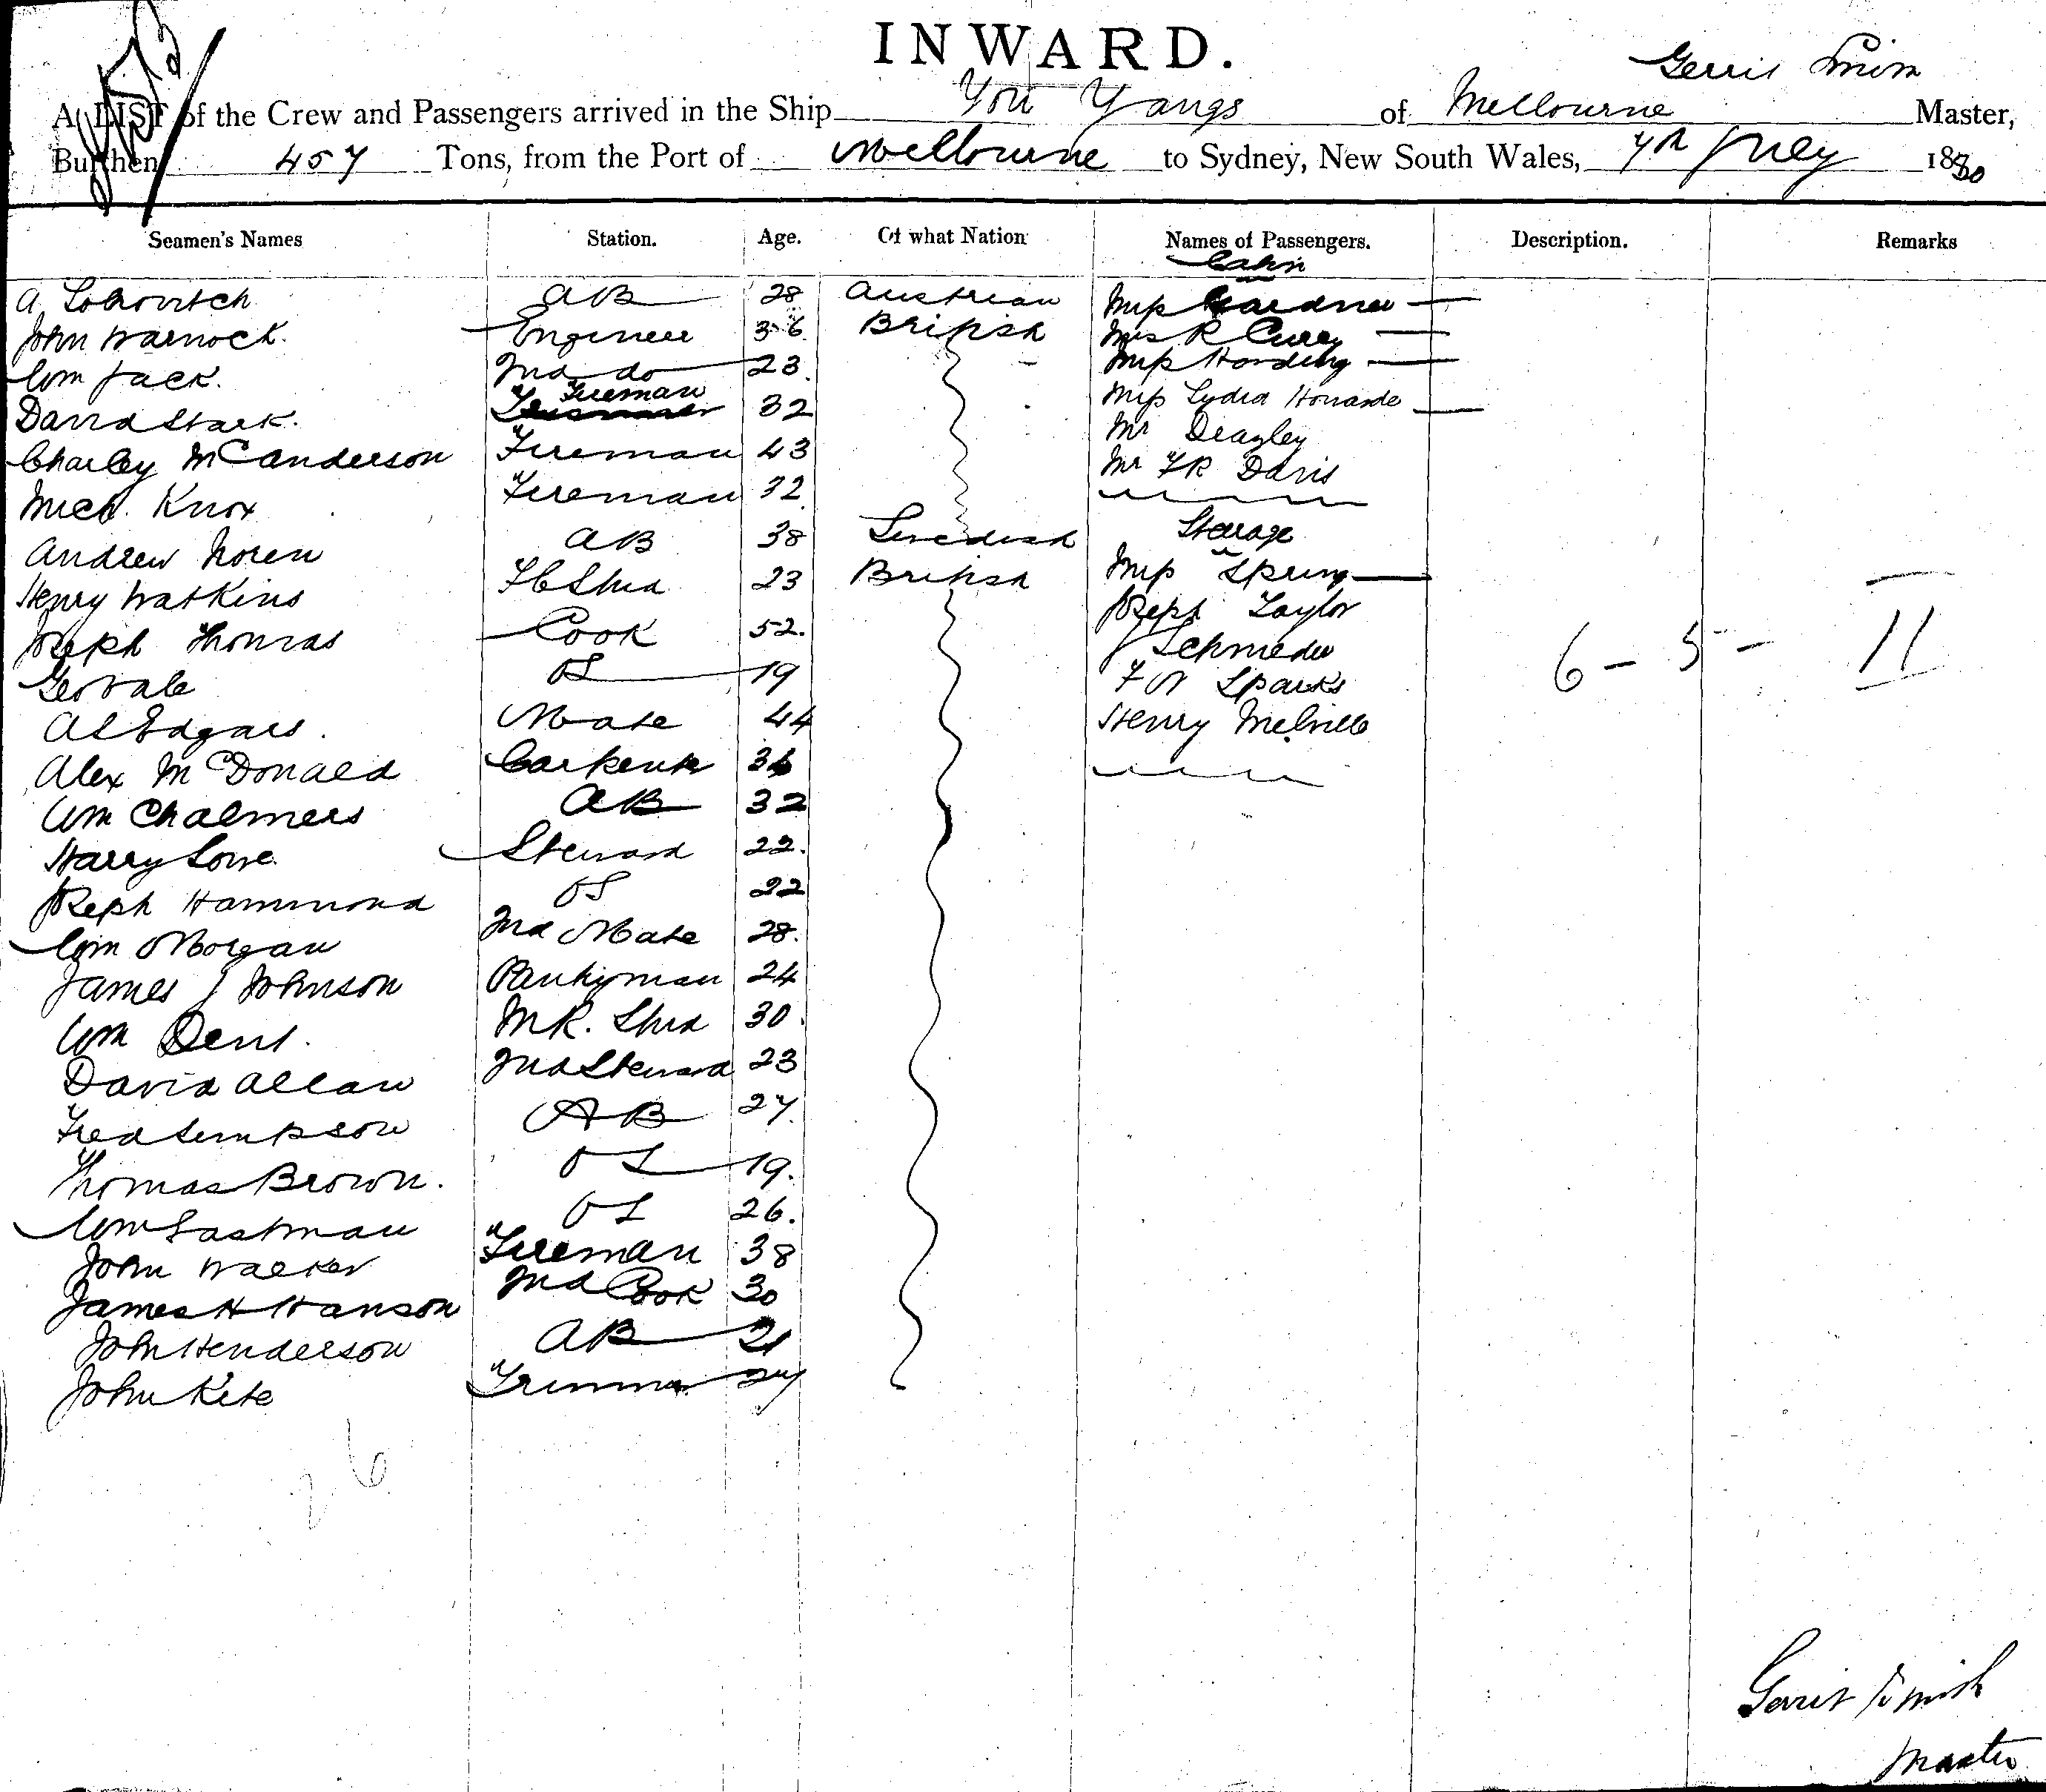 INWARD.
Gerrit Smith
A LIST of the Crew and Passengers arrived in the Ship You Yangs of Melbourne Master,
Burthen 457 Tons, from the Port of Melbourne to Sydney, New South Wales, 7th July 1880
Seamen's Names Station. Age. Of what Nation Names of Passengers. Description. Remarks
Cabin
A AB 28 Austrian Miss Gardner
John Warnock. Engineer 36 British Mrs R Curry
Wm Jack. 2nd do 23. Miss Harding
David Stark. Fireman 32 Miss Lydia
Charley McAnderson Fireman 43 Mr Deazley
Mich. Knox Fireman 32 Mr F R Davis
Andrew Noren AB 38 Swedish Steerage
Henry Watkins F C Stwd 23 British Miss Spring
Joseph Thomas Cook 52. Joseph Taylor
Geo Vale OS 19 Schmeder
A S Edgars. Mate 44 F W Sparks
Alex McDonald Carpenter 36 Henry Melville
6 - 5 - 11
Wm Chalmers AB 32
Harry Lowe Steward 22.
Joseph Hammond OS 22
Wm Morgan 2nd Mate 28.
James J Johnson Pantryman 24
Wm Dent. M R. Stwd 30.
David Allan 2nd Steward 23
Fred Simpson AB 27.
Thomas Brown. OS 19.
Wm Eastman OS 26.
John Walker Fireman 38
James H Hanson 2nd Cook 30
John Henderson AB 21
John Kite Trimmer 27
26
Gerrit Smith
Master